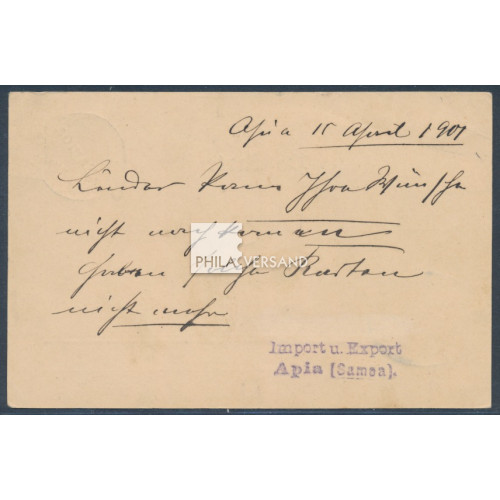 Apia 15 April 1901
Leider kann Ihre Wünsche
nicht nachkommen
haben Karten
nicht mehr
PHILA VERSAND
Import u. Export
Apia (Samoa).